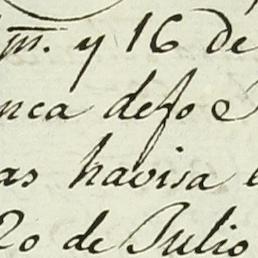 m. y 16 de
nca defo
as havisa
20 de Julio